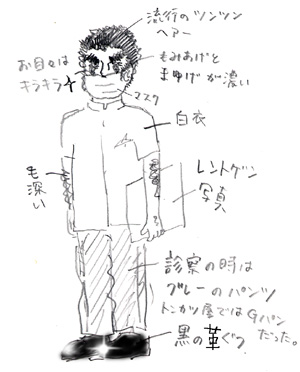 流行のツンツン
ヘアー
お目々は
キラキラ
もみあげと
まゆげが濃い
マスク
白衣
毛
深い
レントゲン
写真
診察の時は
グレーのパンツ
トンカツ屋ではGパン
だった。
黒の革ぐつ